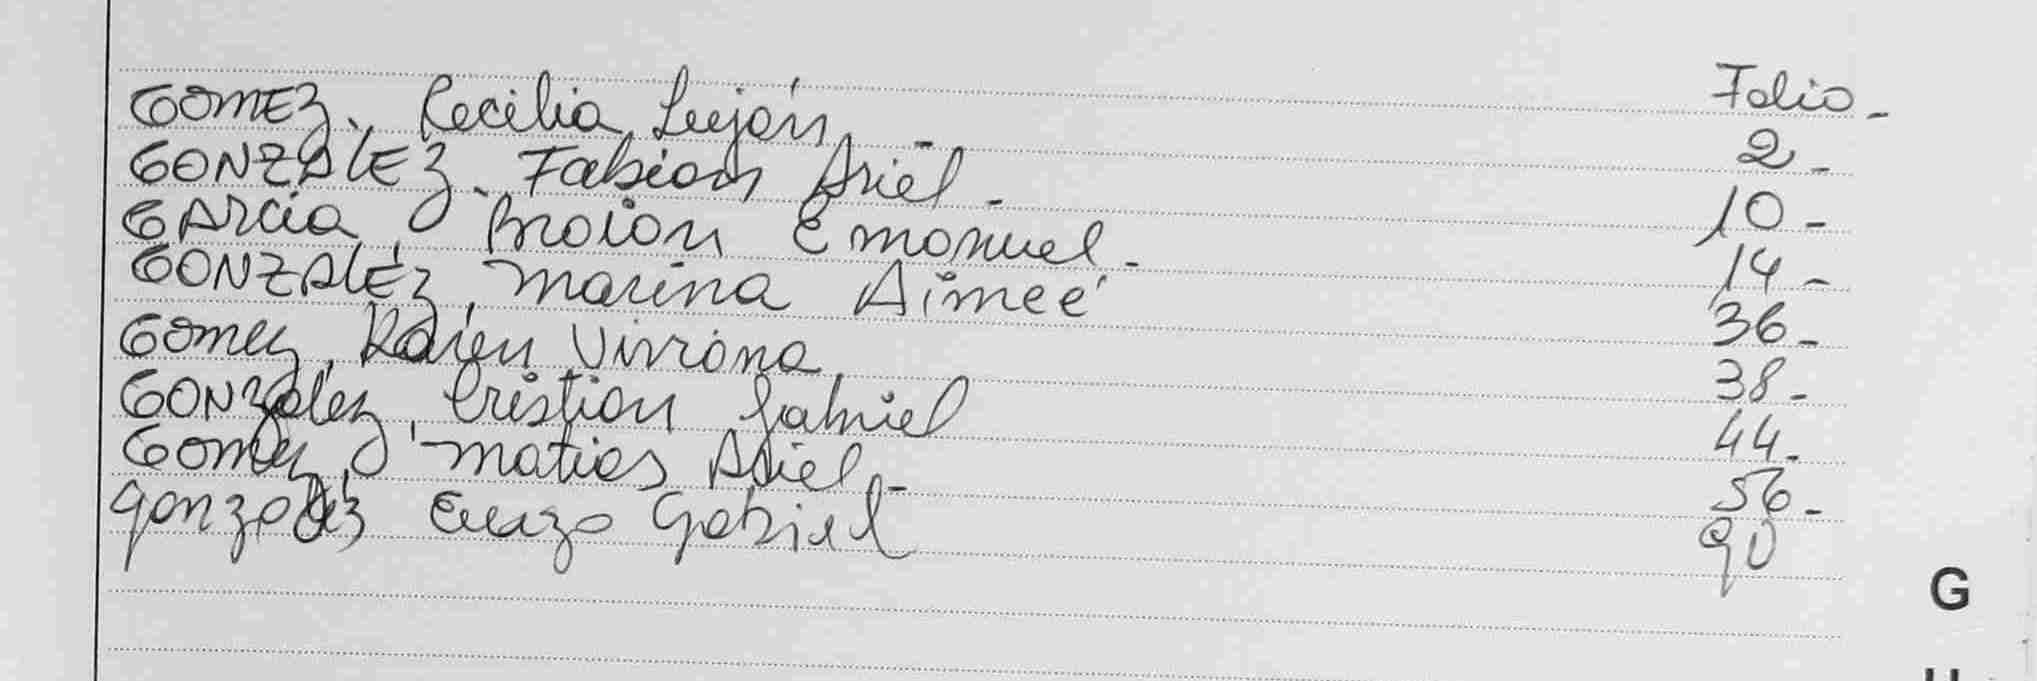 Folio -
GOMEZ, Cecilia Luján - 2 -
GONZALEZ, Fabian Ariel - 10 -
GARCIA, Braian Emanuel - 14 -
GONZALEZ, Marina Aimeé 36 -
Gomez, Karen Viviana 38 -
GONzalez, Cristian Gabriel 44 -
Gomez, Matias Ariel - 56 -
gonzalez Enzo Gabriel 90
G